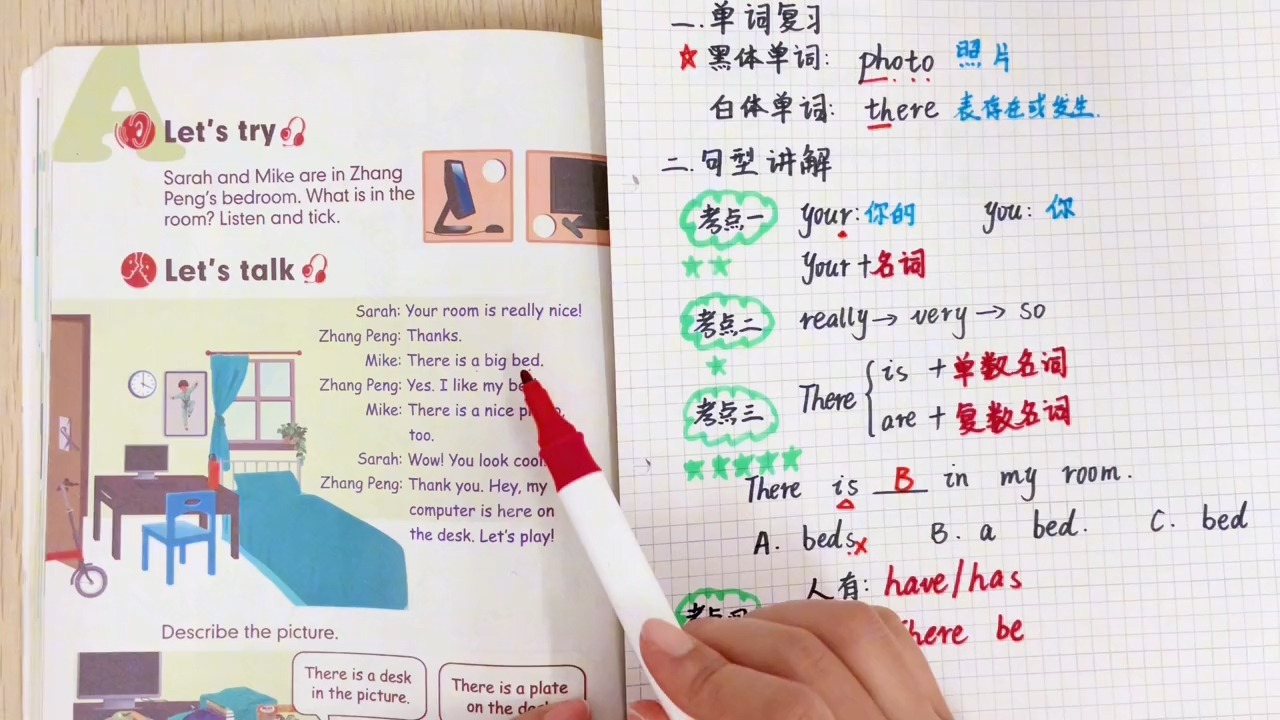 A
Let's try
Sarah and Mike are in Zhang
Peng's bedroom. What is in the
room? Listen and tick.
Let's talk
Sarah: Your room is really nice!
Zhang Peng: Thanks.
Mike: There is a big bed.
Zhang Peng: Yes. I like my
Mike: There is a nice
too.
Sarah: Wow! You look cool
Zhang Peng: Thank you. Hey, my
computer is here on
the desk. Let's play!
Describe the picture.
There is a desk
in the picture.
There is a plate
on the
一. 单词复习
黑体单词: photo 照片
白体单词: there 表存在或发生.
二. 句型讲解
考点一 your: 你的 you: 你
your + 名词
考点二 really → very → so
考点三 There { is + 单数名词
are + 复数名词
There is B in my room.
A. beds x B. a bed. C. bed
人有: have/has
there be